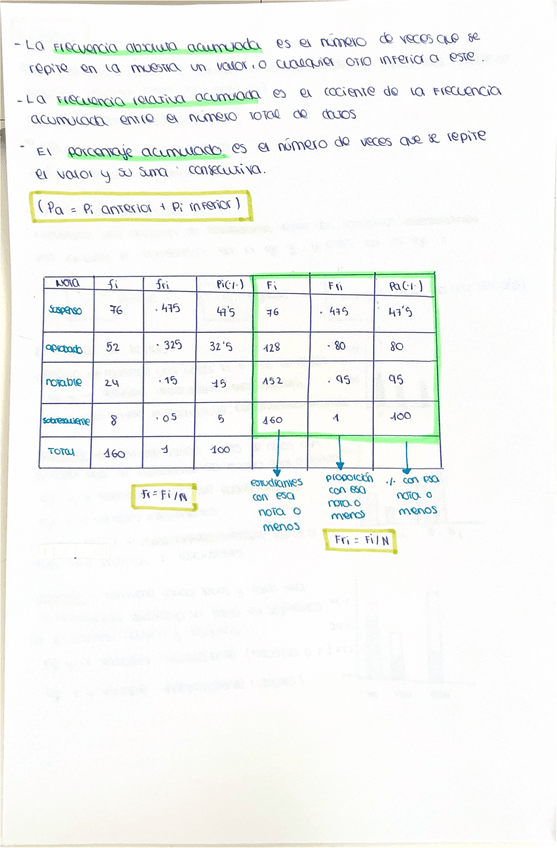 - La Frecuencia absoluta acumulada es el número de veces que se
repite en la muestra un valor, o cualquier otro inferior a este.
- La Frecuencia relativa acumulada es el cociente de la Frecuencia
acumulada entre el número total de datos
- El porcentaje acumulado, es el número de veces que se repite
el valor y su suma consecutiva.
(Pa = Pi anterior + Pi inferior)
NOTA fi fri Pi(%) Fi Fri Pa(%)
suspenso 76 .475 47'5 76 .475 47'5
aprobado 52 .325 32'5 128 .80 80
notable 24 .15 15 152 .95 95
sobresaliente 8 .05 5 160 1 100
TOTAL 160 1 100
Fi = Fi/N
estudiantes
con esa
nota o
menos
proporción
con esa
nota o
menos
% con esa
nota o
menos
Fri = Fi/N